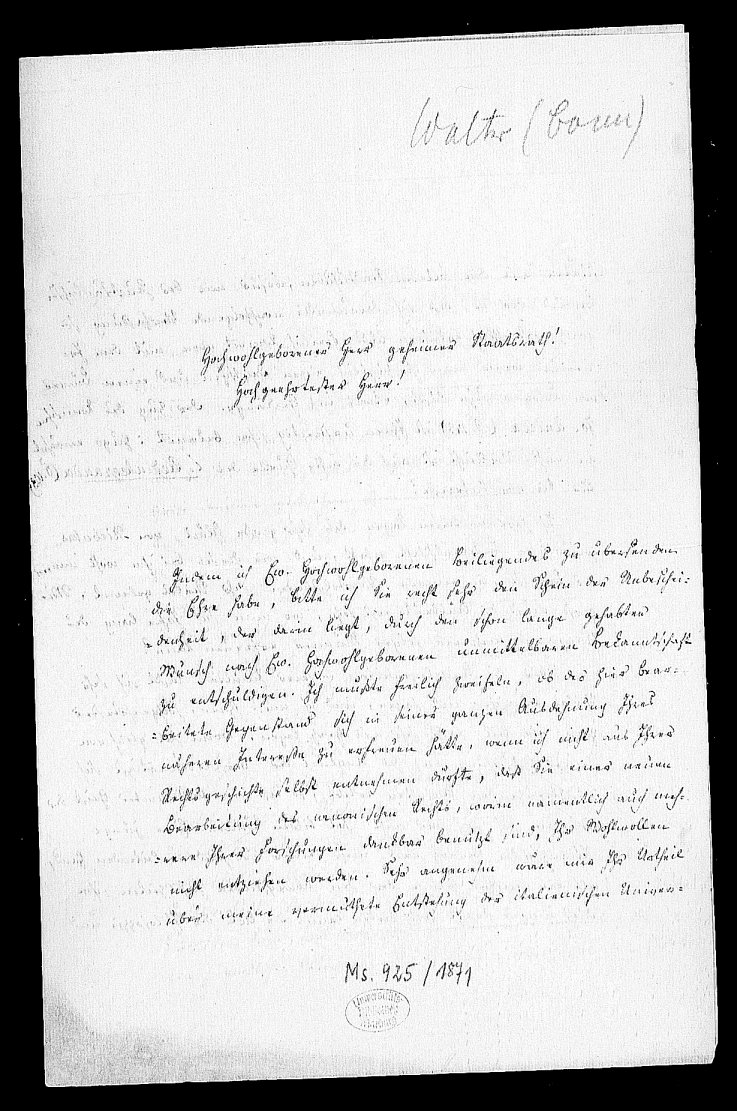 Walter (Bonn)
Hochwohlgeborener Herr geheimer Staatsrath!
Hochgeehrtester Herr!
Indem ich Ew. Hochwohlgeborenen Beiliegendes zu übersenden
die Ehre habe, bitte ich Sie recht sehr den Schein der Unbeschei-
=denheit, der darin liegt, durch den schon lange gehabten
Wunsch nach Ew. Hochwohlgeborenen unmittelbaren Bekanntschaft
zu entschuldigen. Ich mußte freilich zweifeln, ob des hier bear-
=beitete Gegenstand sich in seiner ganzen Ausdehnung Ihres
näheren Interesse zu erfreuen hätte, wenn ich nicht aus Ihrer
Rechtsgeschichte selbst entnehmen durfte, daß Sie einer neuen
Bearbeitung des canonischen Rechts, worin namentlich auch meh-
=rere Ihrer Forschungen dankbar benutzt sind, Ihr Wohlwollen
nicht entziehen werden. Sehr angenehm wäre mir Ihr Urtheil
über meine vermuthete Entstehung der italienischen Univer-
Ms. 925/1871
Universitäts
Bibliothek
Marburg